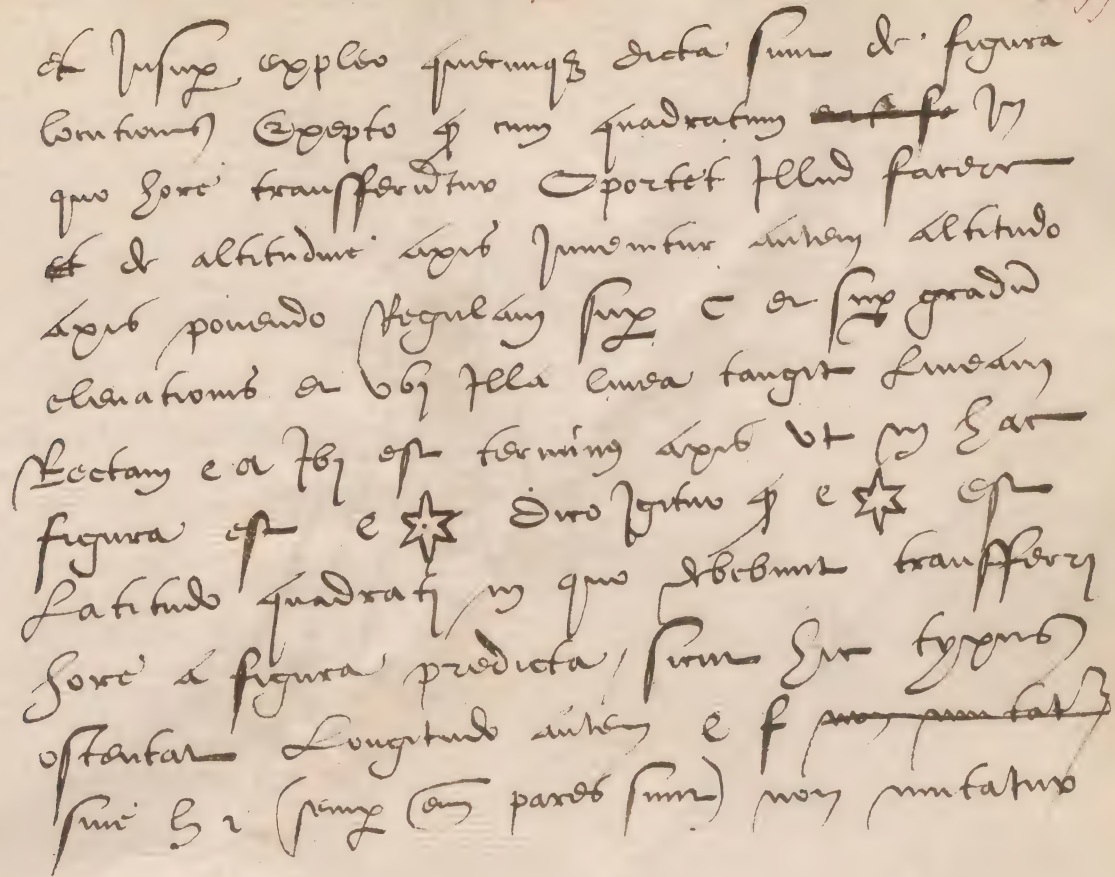 et Insup expleo quecunqꝫ dicta sunt de figura
locutionis Exepto ꝙ cum quadratum In
quo hore transfferūtur Oportet Illud facere
et de altitudine axis Inuenitur autem altitudo
axis ponendo Regulam sup c et sup gradū
eleuationis et vbj Illa linea tangit Lineam
Rectam e a Ibj est terminꝰ axis vt in hac
figura est e ✡ Dico Igitur ꝙ e ✡ est
Latitudo quadratj in quo debebunt transfferrj
hore a figura predicta / sicut hic typus
ostentat Longitudo autem e f non mutatur
siue h i (semp em̄ pares sunt) non mutatur